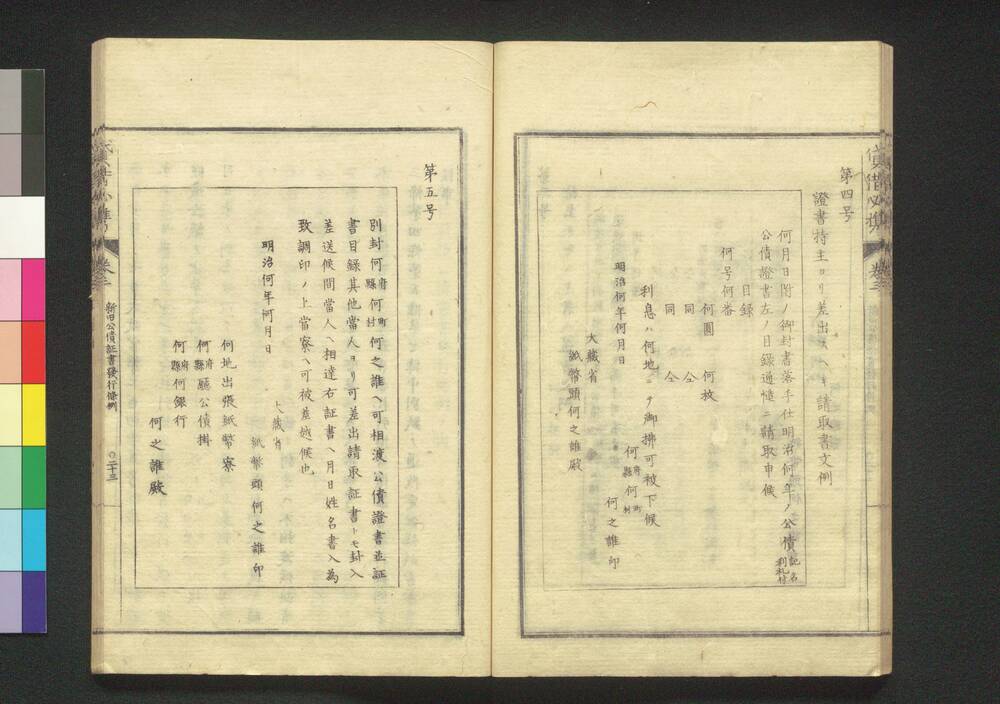 第四号
證書持主ヨリ差出スヘキ請取書文例
何月日附ノ御封書落手仕明治何年ノ公債記名利札付
公債證書左ノ目録通慥ニ請取申候
目録
何号何番
何圓 何枚
同 仝
同 仝
利息ハ何地ニテ御拂可被下候
何府縣何町村
何之誰印
明治何年何月日
大藏省
紙幣頭何之誰殿
第五号
別封何府縣何町村何之誰ヘ可相渡公債證書並証
書目録其他當人ヨリ可差出請取証書トモ封入
差送候間當人ヘ相達右証書ヘ月日姓名書入為
致調印ノ上當寮ヘ可被差越候也
明治何年何月日
大藏省
紙幣頭何之誰印
何地出張紙幣寮
何府縣廳公債掛
何府縣何銀行
何之誰殿
卷三
新旧公債証書發行條例
〇二十三